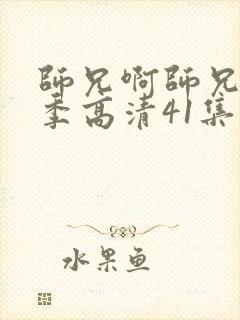 師兄啊師兄
季高清41集
水果鱼